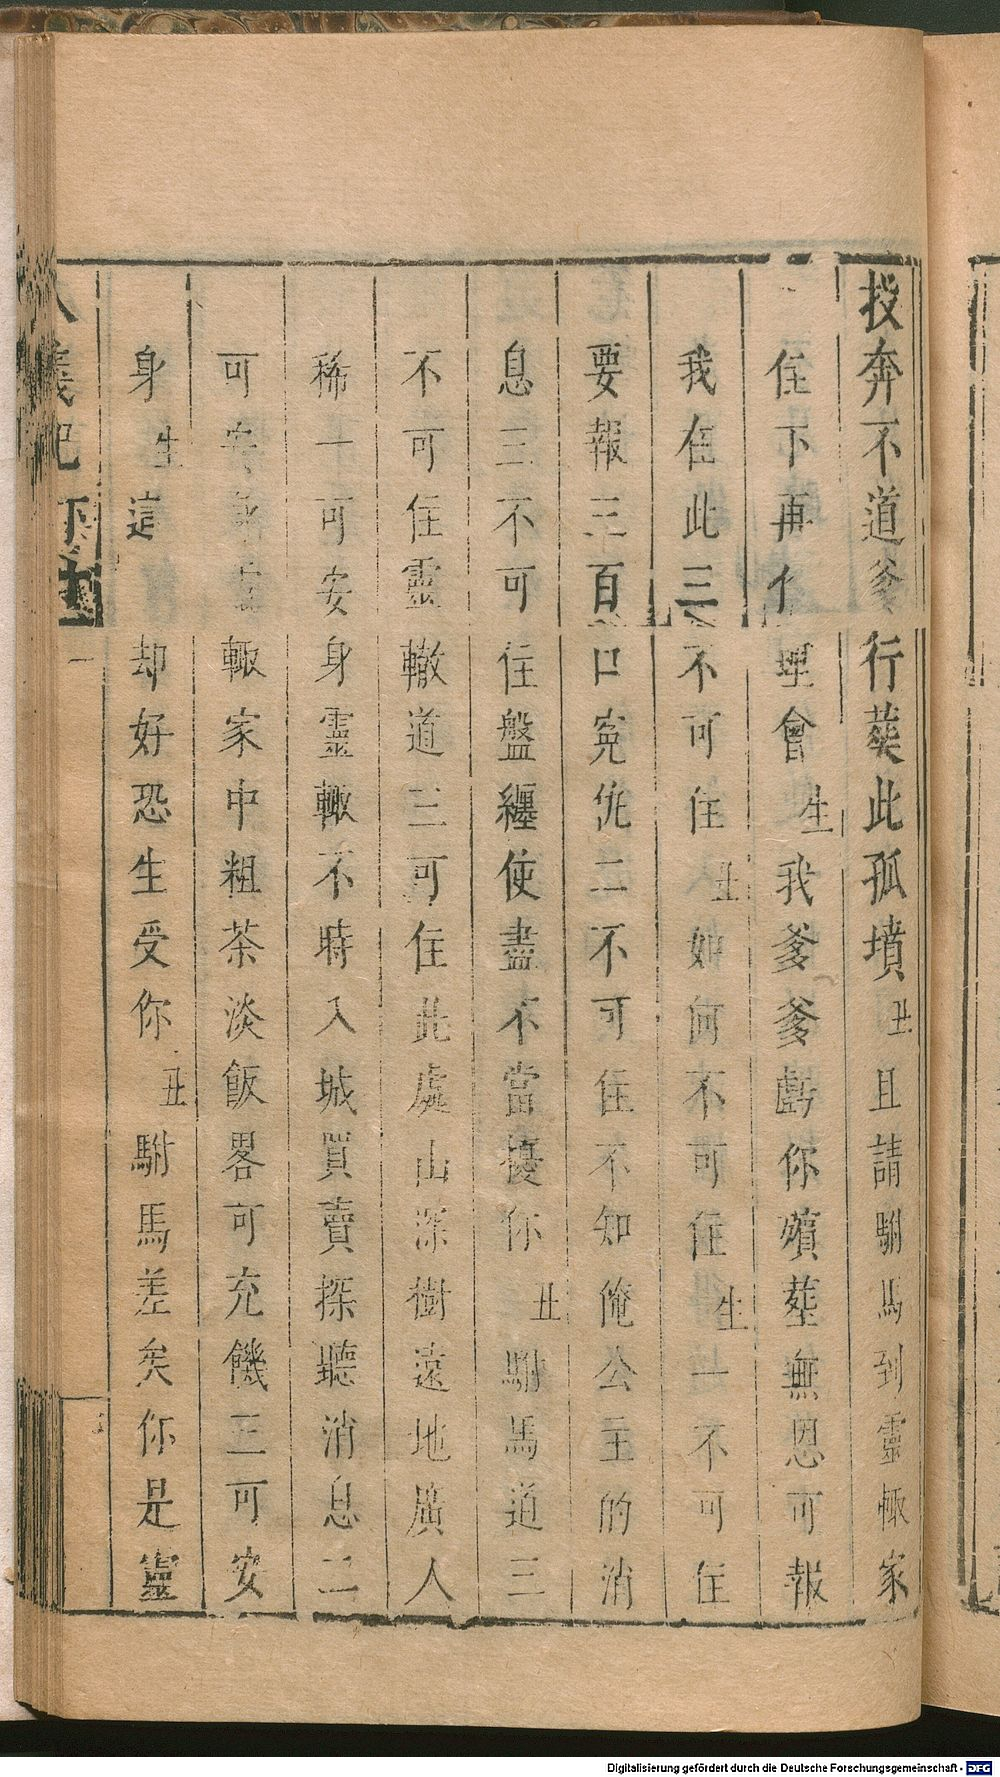 投奔不道爹行葬此孤墳丑且請駙馬到靈輒家
住下再作理會生我爹爹虧你殯葬無恩可報
我在此三不可住丑如何不可住生一不可住
要報三百口寃仇二不可住不知俺公主的消
息三不可住盤纏使盡不當擾你丑駙馬道三
不可住靈轍道三可住此處山深樹遠地廣人
稀一可安身靈輙不時入城買賣探聽消息二
可安身輙家中粗茶淡飯畧可充饑三可安
身生這却好恐生受你丑駙馬差矣你是靈
八義記
Digitalisierung gefördert durch die Deutsche Forschungsgemeinschaft - DFG